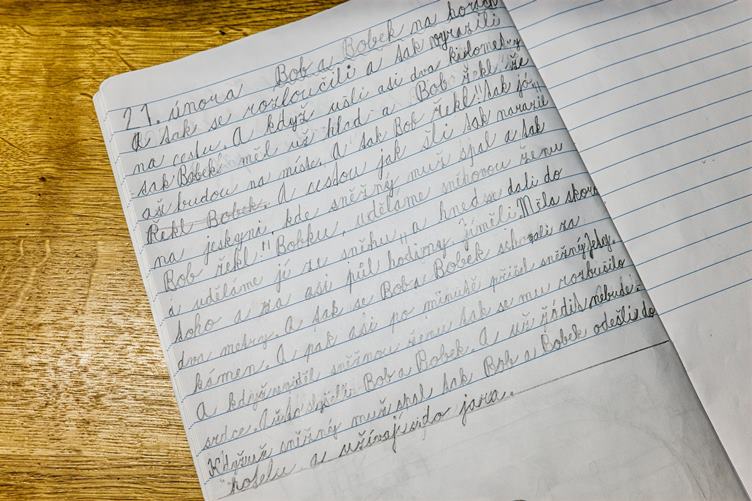 21. února Bob a Bobek na horách
A tak se rozloučili a tak vyrazili
na cestu. A když ušli asi dva kilometry
tak Bobek měl už hlad a Bob řekl "že
asi budou na míste. A tak Bob řekl "tak jó,
Řekl Bobek. A cestou jak šli tak narazili
na jeskyni, kde sněžný muž spal a tak
Bob řekl "Bobku, uděláme sněhovou ženu
a uděláme jí ze sněhu" a hned se dali do
toho a za asi půl hodiny jí měli. Měla skoro
dva metry. A tak se Bob a Bobek schovali za
kámen. A pak asi po minutě přišel sněžný
A když uviděl sněžnou ženu tak se mu rozbušilo
srdce. Bob a Bobek. A už řádit nebude.
Když už sněžný muž spal tak Bob a Bobek odešli do
hotelu a užívají do jara.